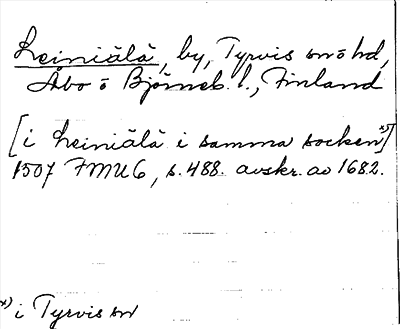 Leiniälä, by, Tyrvis sn o hd,
Åbo o Björneb. l., Finland
[i Leiniälä i samma socken x)]
1507 FMU 6, s. 488. avskr. av 1682.
x) i Tyrvis sn